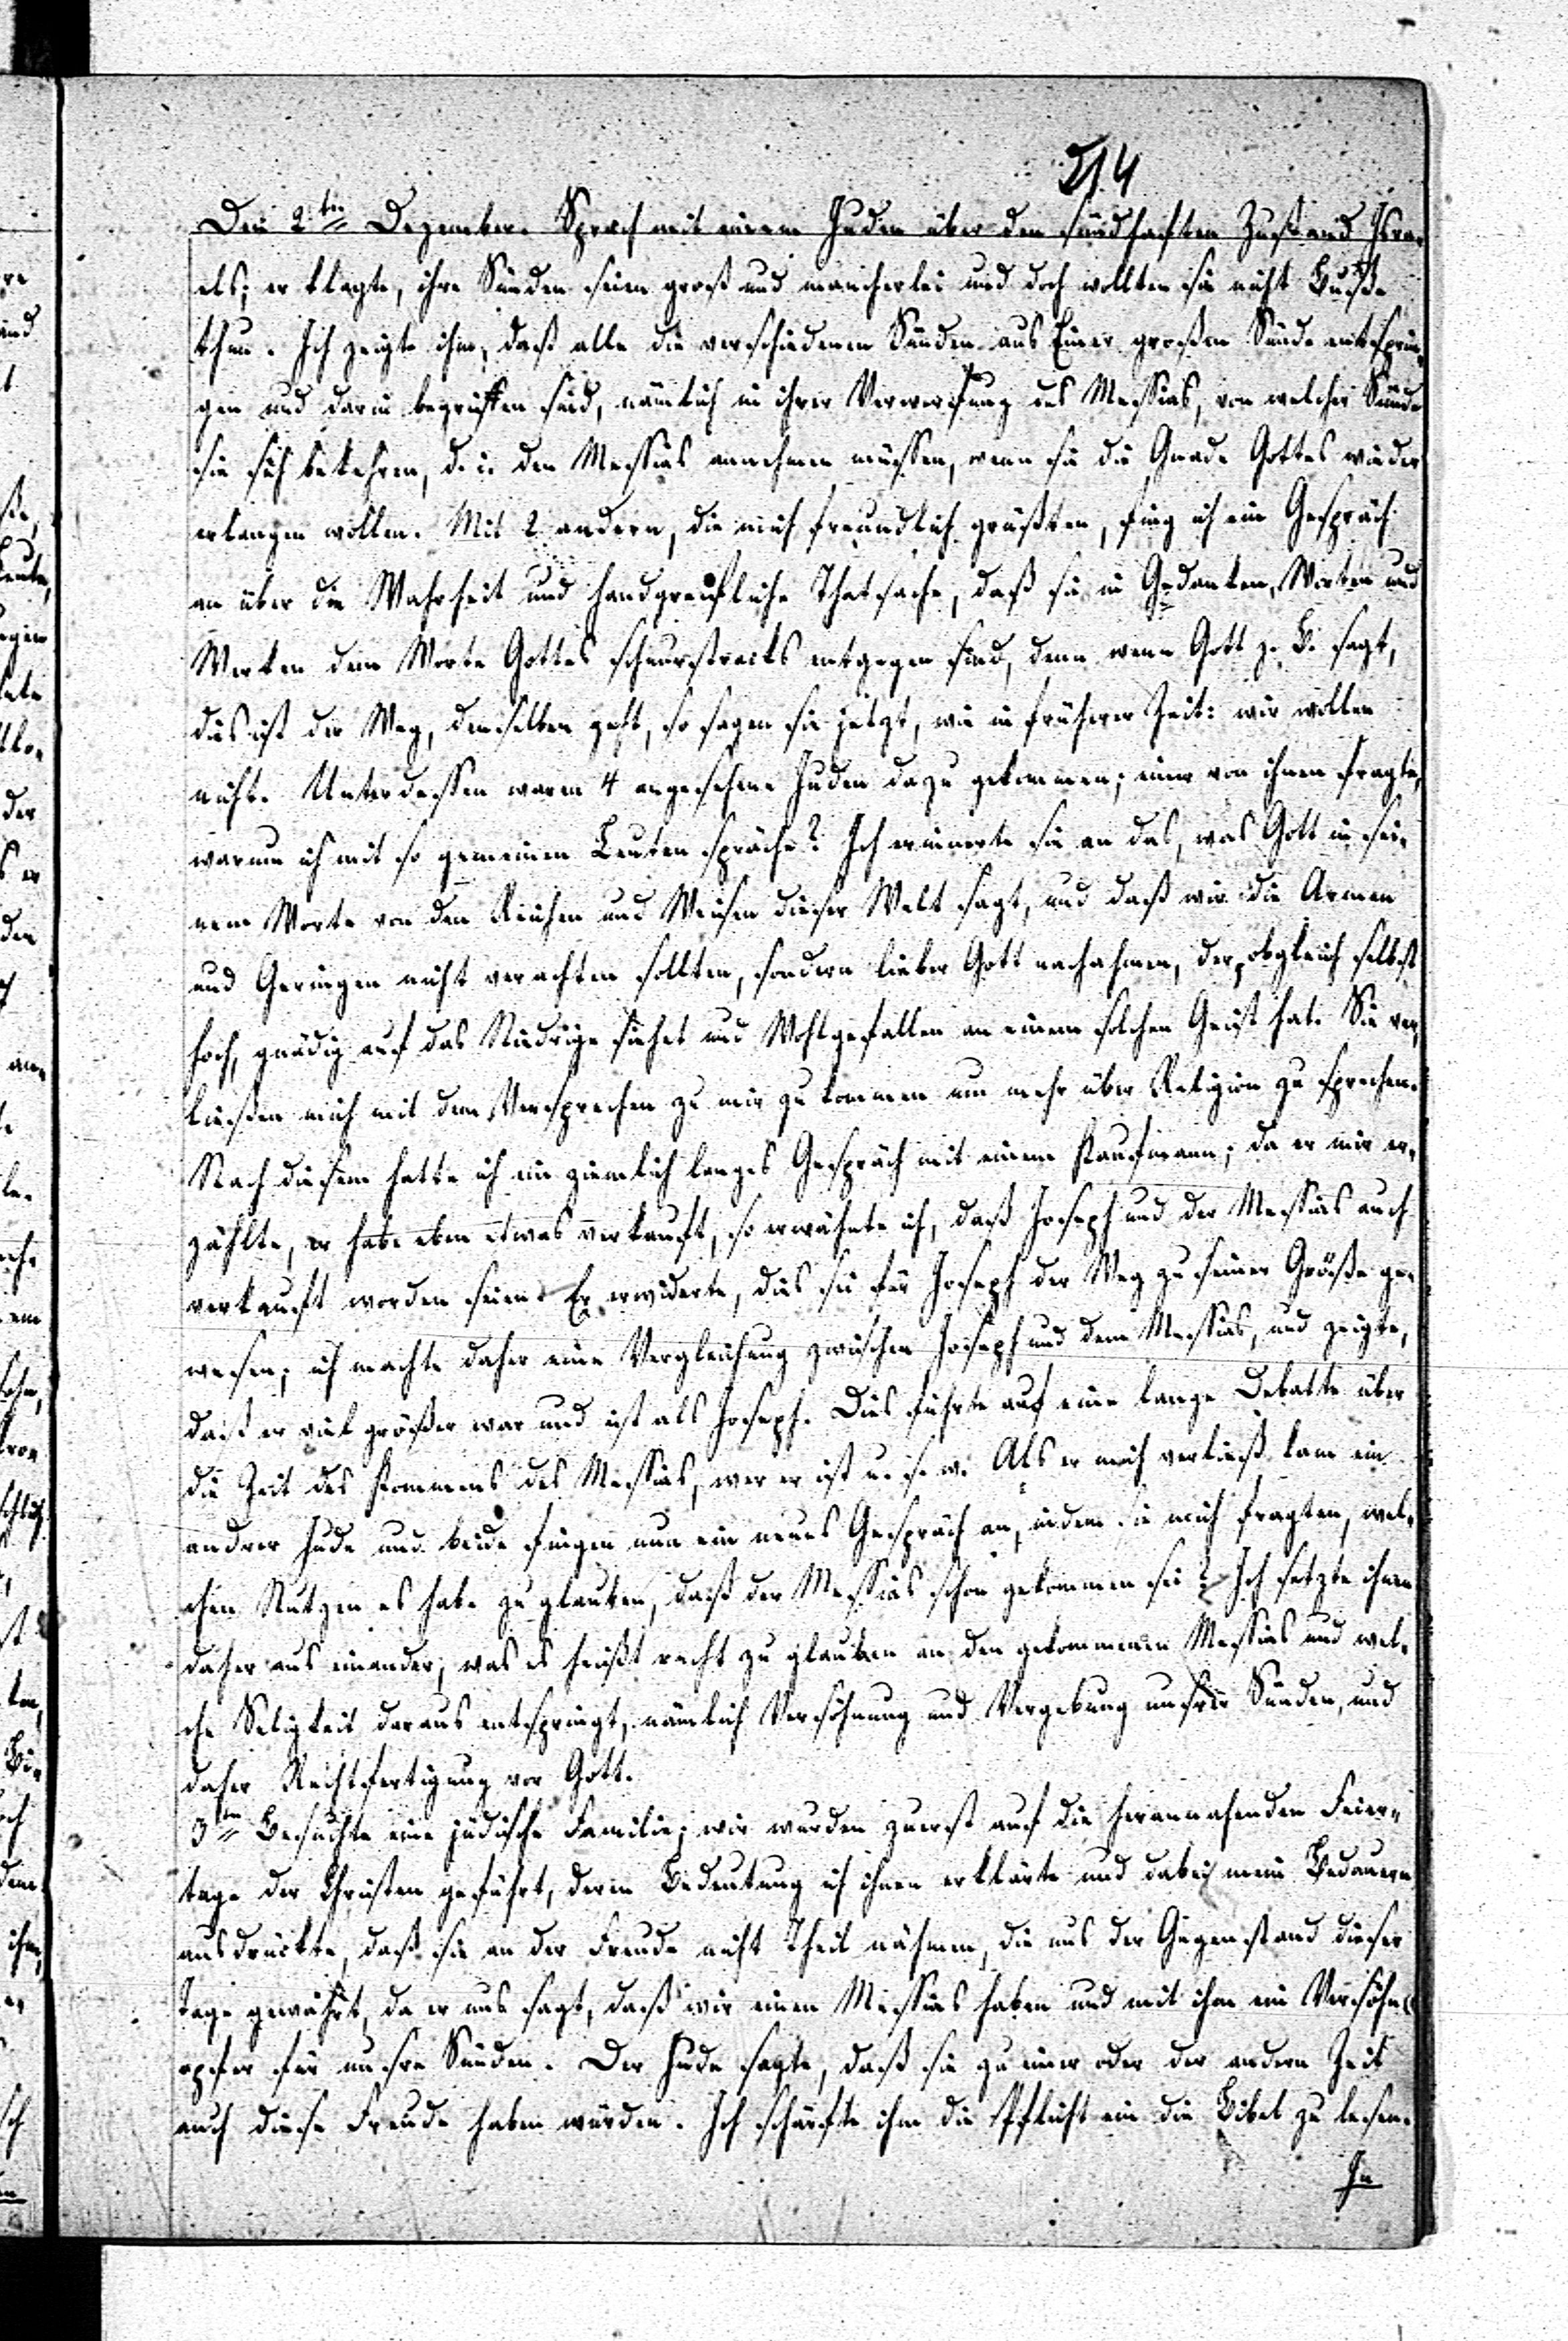 214
Den 2ten Dezember. Sprach mit einem Juden über den sündhaften Zustand Isra-
els; er klagte, ihre Sünden seien groß und mancherlei und doch wollten sie nicht Buße
thun. Ich zeigte ihm, daß alle die verschiedenen Sünden aus Einer großen Sünde entsprin-
gen und darin begriffen sind, nämlich in ihrer Verwerfung des Messias, von welcher Sünde
sie sich bekehren, d. i. den Messias annehmen müssen, wenn sie die Gnade Gottes wieder
erlangen wollen. Mit 2 andern, die mich freundlich grüßten, fing ich ein Gespräch
an über die Wahrheit und handgreifliche Thatsache, daß sie in Gedanken, Worten und
Werken dem Worte Gottes schnurstracks entgegen sind, denn wenn Gott z. B. sagt,
dies ist der Weg, denselben geht, so sagen sie jetzt, wie in früherer Zeit: wir wollen
nicht. Unterdessen waren 4 angesehene Juden dazu gekommen; einer von ihnen fragte,
warum ich mit so gemeinen Leuten spräche? Ich erinnerte sie an das, was Gott in sei-
nem Worte von den Reichen und Weisen dieser Welt sagt, und daß wir die Armen
und Geringen nicht verachten sollten, sondern lieber Gott nachahmen, der, obgleich selbst
hoch, gnädig auf das Niedrige siehet und Wohlgefallen an einem solchen Geist hat. Sie ver-
ließen mich mit dem Versprechen zu mir zu kommen um mehr über Religion zu sprechen.
Nach diesem hatte ich ein ziemlich langes Gespräch mit einem Kaufmann; da er mir er-
zählte, er habe eben etwas verkauft, so erwähnte ich, daß Joseph und der Messias auch
verkauft worden seien. Er erwiderte, dies sei für Joseph der Weg zu seiner Größe ge-
wesen; ich machte daher eine Vergleichung zwischen Joseph und dem Messias, und zeigte,
daß er viel größer war und ist als Joseph. Dies führte auf eine lange Debatte über
die Zeit des Kommens des Messias, wer er ist u. s. w. Als er mich verließ kam ein
andrer Jude und beide fingen nun ein neues Gespräch an, indem sie mich fragten, wel-
chen Nutzen es habe zu glauben, daß der Messias schon gekommen sei? Ich setzte ihnen
daher aus einander, was es heißt recht zu glauben an den gekommenen Messias und wel-
che Seligkeit daraus entspringt, nämlich Versöhnung und Vergebung unsrer Sünden, und
daher Rechtfertigung vor Gott.
3ten Besuchte eine jüdische Familie; wir wurden zuerst auf die herannahenden Feier-
tage der Christen geführt, deren Bedeutung ich ihnen erklärte und dabei mein Bedauern
ausdrückte, daß sie an der Freude nicht Theil nähmen, die uns der Gegenstand dieser
Tage gewährt, da er uns sagt, daß wir einen Messias haben und mit ihm ein Versöhn-
opfer für unsre Sünden. Der Jude sagte, daß sie zu einer oder der andern Zeit
auch diese Freude haben würden. Ich schärfte ihm die Pflicht ein die Bibel zu lesen.
In